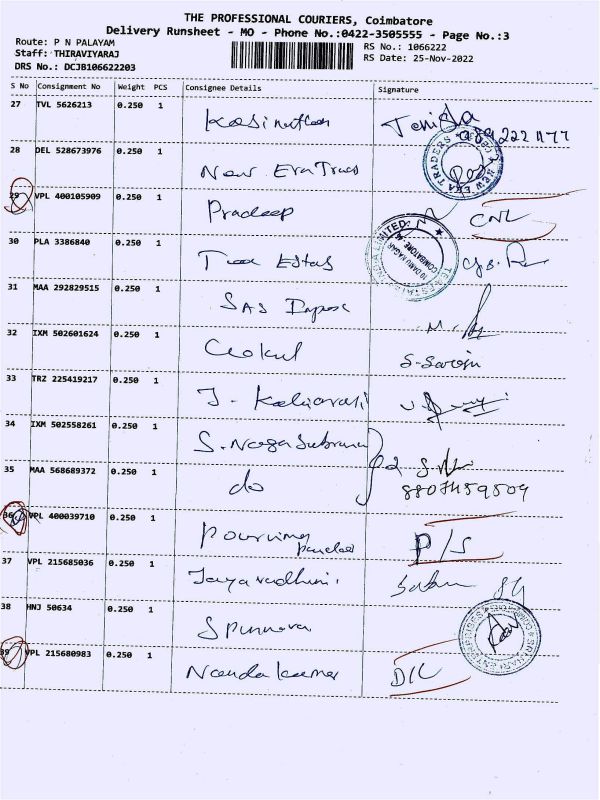 THE PROFESSIONAL COURIERS, Coimbatore
Delivery Runsheet - MO - Phone No.:0422-3505555 - Page No.:3
Route: P N PALAYAM
Staff: THIRAVIYARAJ
DRS No.: DCJB106622203
RS No.: 1066222
RS Date: 25-Nov-2022
S No Consignment No Weight PCS Consignee Details Signature
27 TVL 5626213 0.250 1 Kasinathan
28 DEL 528673976 0.250 1 New Era Traders
NEW ERA TRADERS
29 VPL 400105909 0.250 1 Pradeep CNL
30 PLA 3386840 0.250 1 Tea Estas
LIMITED
COIMBATORE
31 MAA 292829515 0.250 1 SAS
32 IXM 502601624 0.250 1 Gokul S-Saroja
33 TRZ 225419217 0.250 1 J.
34 IXM 502558261 0.250 1 S. Naga
35 MAA 568689372 0.250 1 do
8807459509
36 VPL 400039710 0.250 1 P/S
37 VPL 215685036 0.250 1
38 HNJ 50634 0.250 1
39 VPL 215680983 0.250 1 Nandakumar D/L